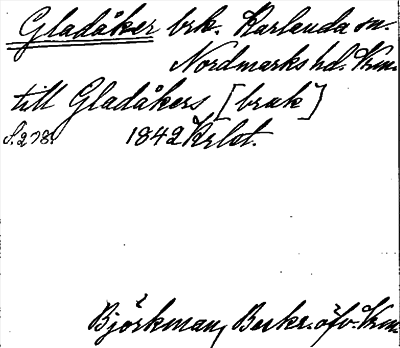 Gladåker brk. Karlanda sn.
Nordmarks hd. Vrm.
till Gladåkers [bruk]
S. 278. 1842 Krlst.
Björkman, Beskr. öfv. Vrm.